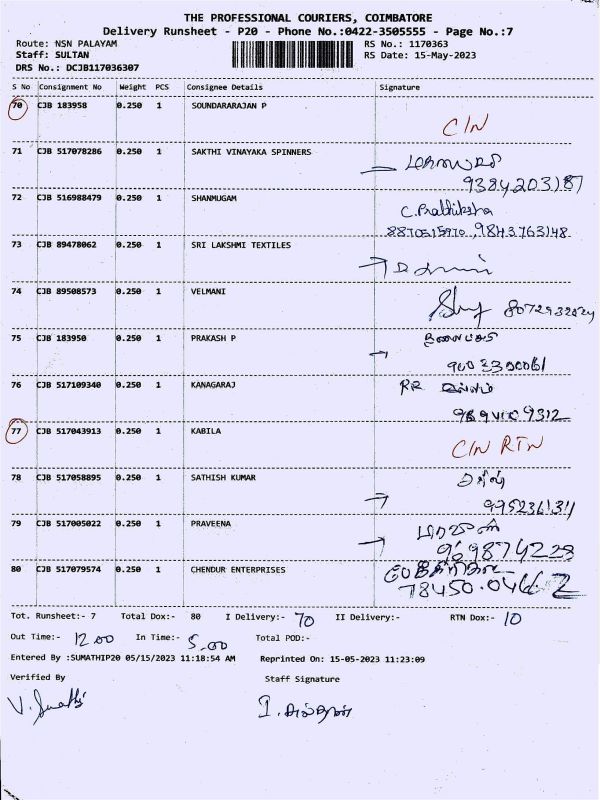 THE PROFESSIONAL COURIERS, COIMBATORE
Delivery Runsheet - P20 - Phone No.:0422-3505555 - Page No.:7
Route: NSN PALAYAM RS No.: 1170363
Staff: SULTAN RS Date: 15-May-2023
DRS No.: DCJB117036307
S No Consignment No Weight PCS Consignee Details Signature
70 CJB 183958 0.250 1 SOUNDARARAJAN P
C/N
71 CJB 517078286 0.250 1 SAKTHI VINAYAKA SPINNERS
9384203187
72 CJB 516988479 0.250 1 SHANMUGAM
C.Prathiksha
8870515970, 9843763148
73 CJB 89478062 0.250 1 SRI LAKSHMI TEXTILES
74 CJB 89508573 0.250 1 VELMANI
75 CJB 183950 0.250 1 PRAKASH P
76 CJB 517109340 0.250 1 KANAGARAJ
RR இல்லம்
77 CJB 517043913 0.250 1 KABILA
C/N RTN
78 CJB 517058895 0.250 1 SATHISH KUMAR
79 CJB 517005022 0.250 1 PRAVEENA
969874228
80 CJB 517079574 0.250 1 CHENDUR ENTERPRISES
78450.04662
Tot. Runsheet:- 7 Total Dox:- 80 I Delivery:- 70 II Delivery:- RTN Dox:- 10
Out Time:- 12.00 In Time:- 5.00 Total POD:-
Entered By :SUMATHIP20 05/15/2023 11:18:54 AM Reprinted On: 15-05-2023 11:23:09
Verified By Staff Signature
V. Sumathi